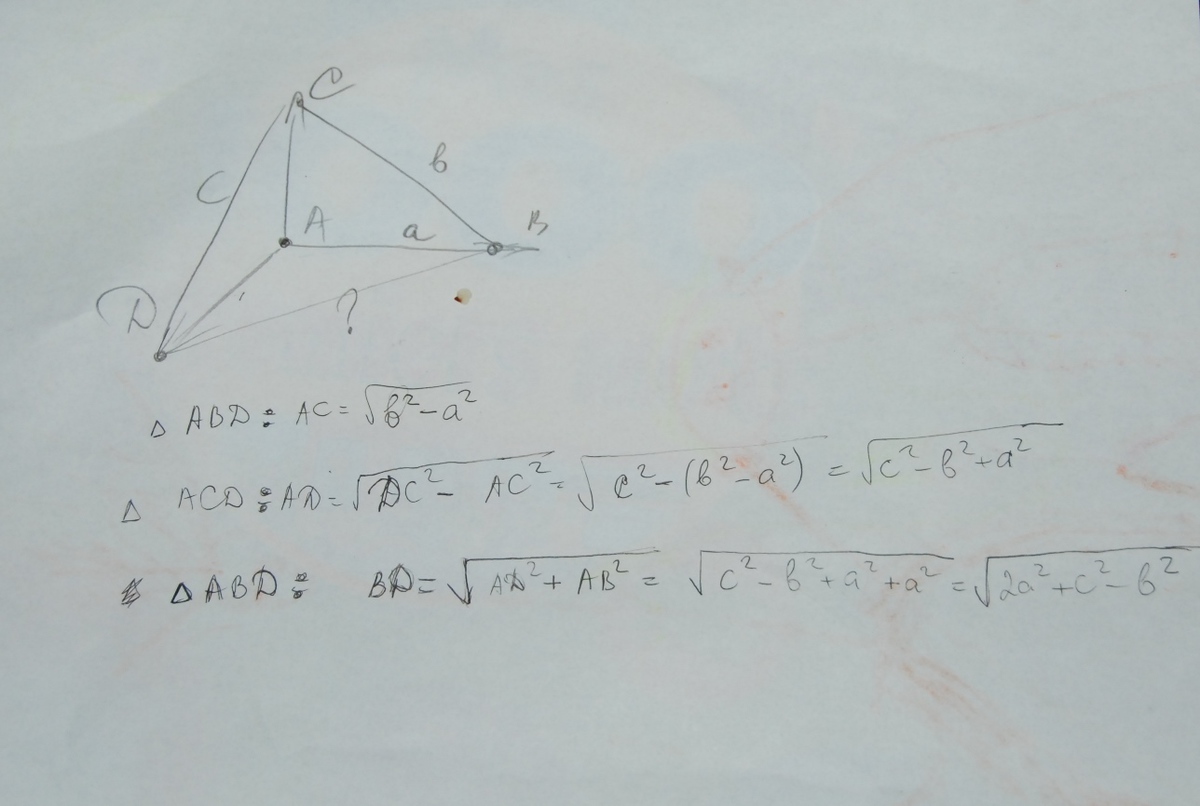 C
b
C
A
a
B
D
?
△ ABD : AC = √(b² - a²)
△ ACD : AD = √(DC² - AC²) = √(c² - (b² - a²)) = √(c² - b² + a²)
△ ABD : BD = √(AD² + AB²) = √(c² - b² + a² + a²) = √(2a² + c² - b²)